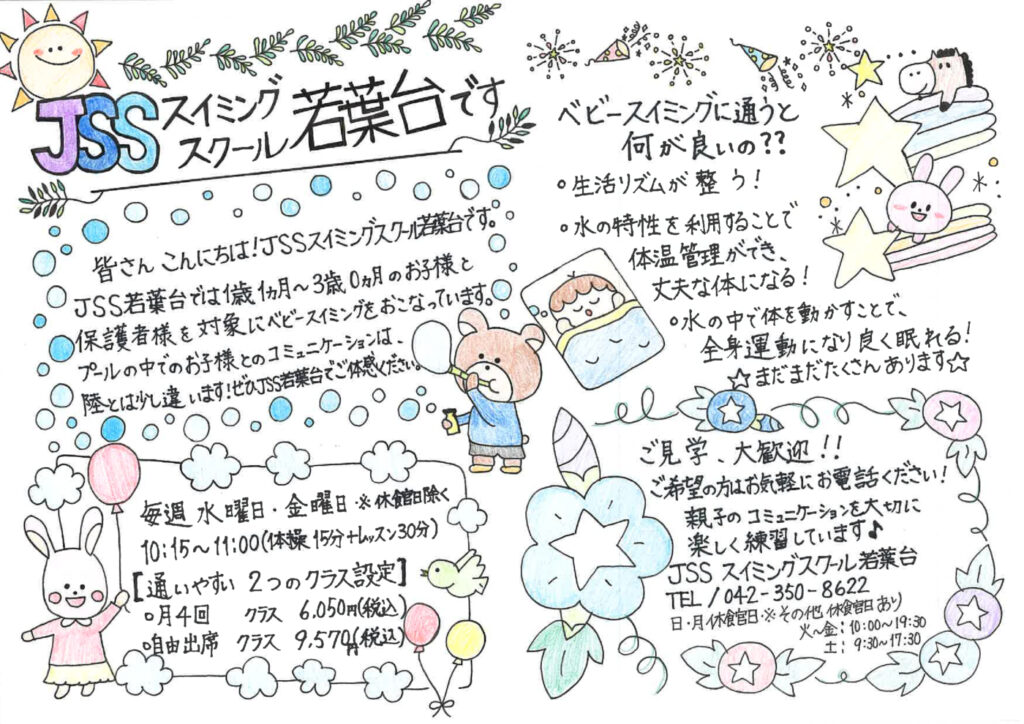 JSSスイミング
スクール若葉台です
皆さんこんにちは!JSSスイミングスクール若葉台です。
JSS若葉台では1歳1ヵ月〜3歳0ヵ月のお子様と
保護者様を対象にベビースイミングをおこなっています。
プールの中でのお子様とのコミュニケーションは、
陸とは少し違います!ぜひJSS若葉台でご体感ください。
毎週 水曜日・金曜日 ※休館日除く
10:15〜11:00(体操15分+レッスン30分)
[通いやすい 2つのクラス設定]
○月4回 クラス 6.050円(税込)
○自由出席 クラス 9.570円(税込)
ベビースイミングに通うと
何が良いの??
○生活リズムが整う!
○水の特性を利用することで
体温管理ができ、
丈夫な体になる!
○水の中で体を動かすことで、
全身運動になり良く眠れる!
☆まだまだたくさんあります☆
ご見学、大歓迎!!
ご希望の方はお気軽にお電話ください!
親子のコミュニケーションを大切に
楽しく練習しています♪
JSS スイミングスクール若葉台
TEL/042-350-8622
日・月休館日※その他 休館日あり
火〜金:10:00〜19:30
土:9:30〜17:30